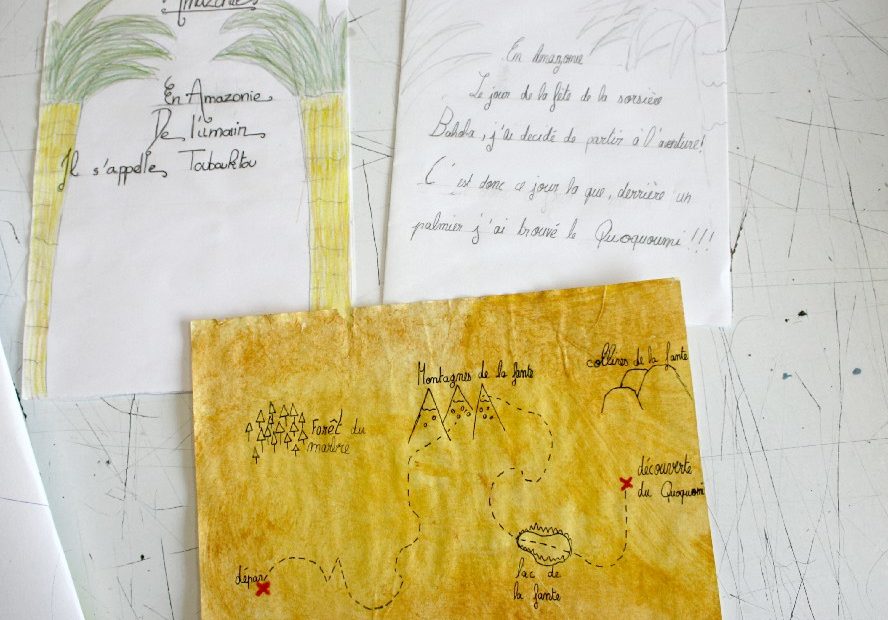 Amazonie
En Amazonie
De l'umain
Il s'appelle Toubouktou
En Amazonie
Le jour de la fête de la sorsière
Baholo, j'ai décidé de partir à l'aventure!
C'est donc ce jour la que, derrière un
palmier j'ai trouvé le Quoquoumi!!!
Montagnes de la fante
collines de la fante
Farêt du
marbre
découverte
du Quoquomi
dépar
lac de
la fante